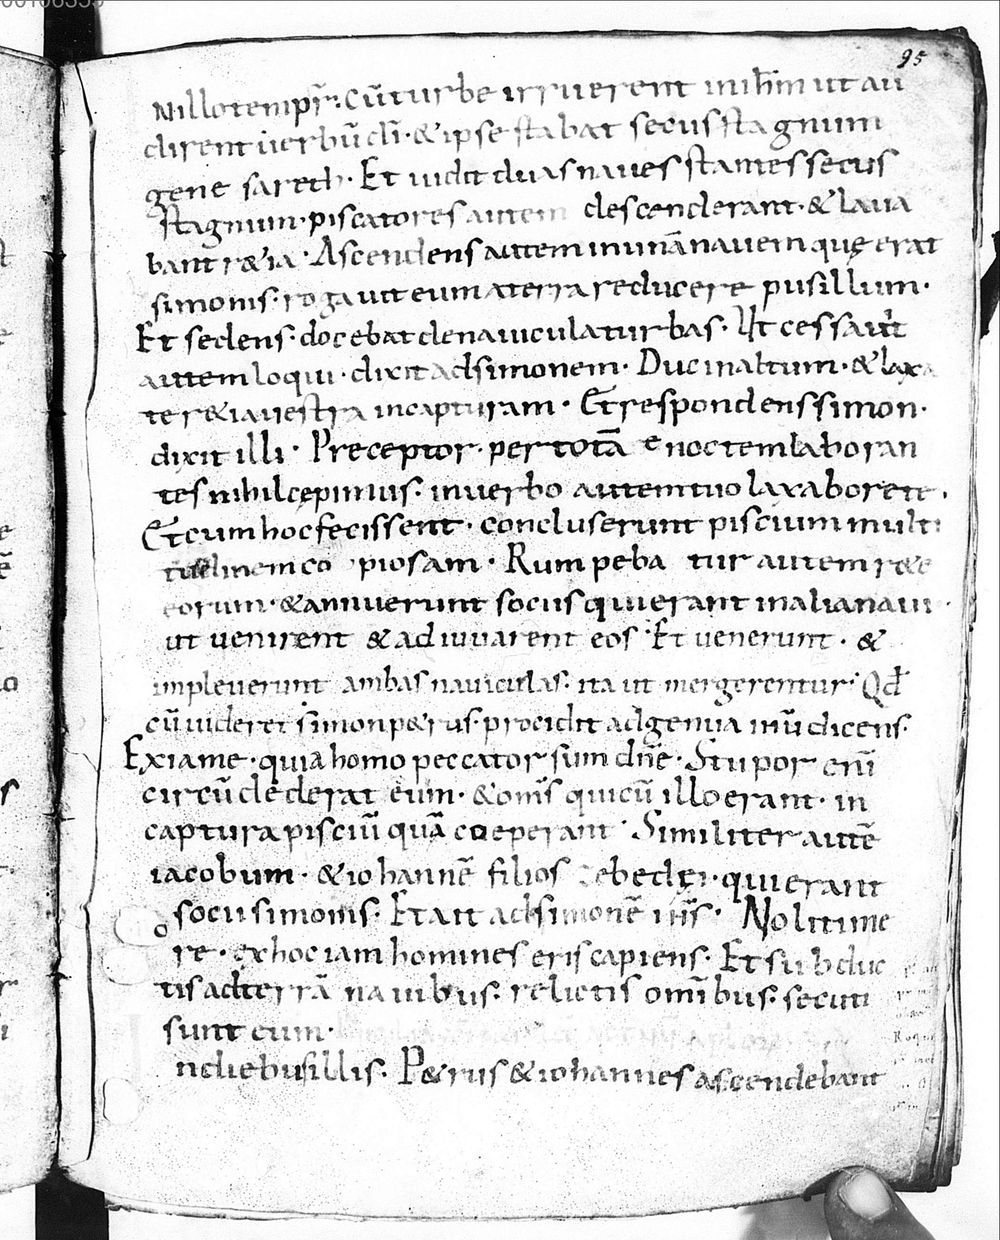 95
Nillotempr̄· cū turbe irruerent inihm̄ ut au
dirent uerbū dī· & ipse stabat secus stagnum
gene sareth· Et uidit duas naues stantes secus
stagnum· piscatores autem descenderant· & laua
bant r&ia· Ascendens autem inunā nauem quę erat
simonis· rogauit eum aterra reducere pusillum·
Et sedens· docebat denauicula turbas· Ut cessauit
autem loqui· dixit adsimonem· Duc inaltum· & laxa
te r&ia uestra incapturam· Et respondens simon·
dixit illi· Preceptor· per totā e noctem laboran
tes nihil cępimus· inuerbo autem tuo laxabo rete·
Et cum hoc fecissent· concluserunt piscium multi
tudinem co piosam· Rum peba tur autem r&e
eorum· & annuerunt sociis qui erant inalia naui·
ut uenirent & adiuuarent eos Et uenerunt· &
impleuerunt ambas nauiculas· ita ut mergerentur· Qđ
cū uideret simon p&rus· procidit adgenua ihū dicens·
Exi ame· quia homo peccator sum dn̄e· Stupor enī
circū dederat eum· & om̄s quicū illo erant· in
captura pisciū quā coeperant· Similiter autē
iacobum· & iohannē filios zebedęi· qui erant
socii simonis· Et ait adsimonē ihs̄· Noli time
re· ex hoc iam homines eris capiens· Et subduc
tis adterrā nauibus· relictis omībus· secuti
sunt eum·
ndiebus illis· P&rus & iohannes ascendebant